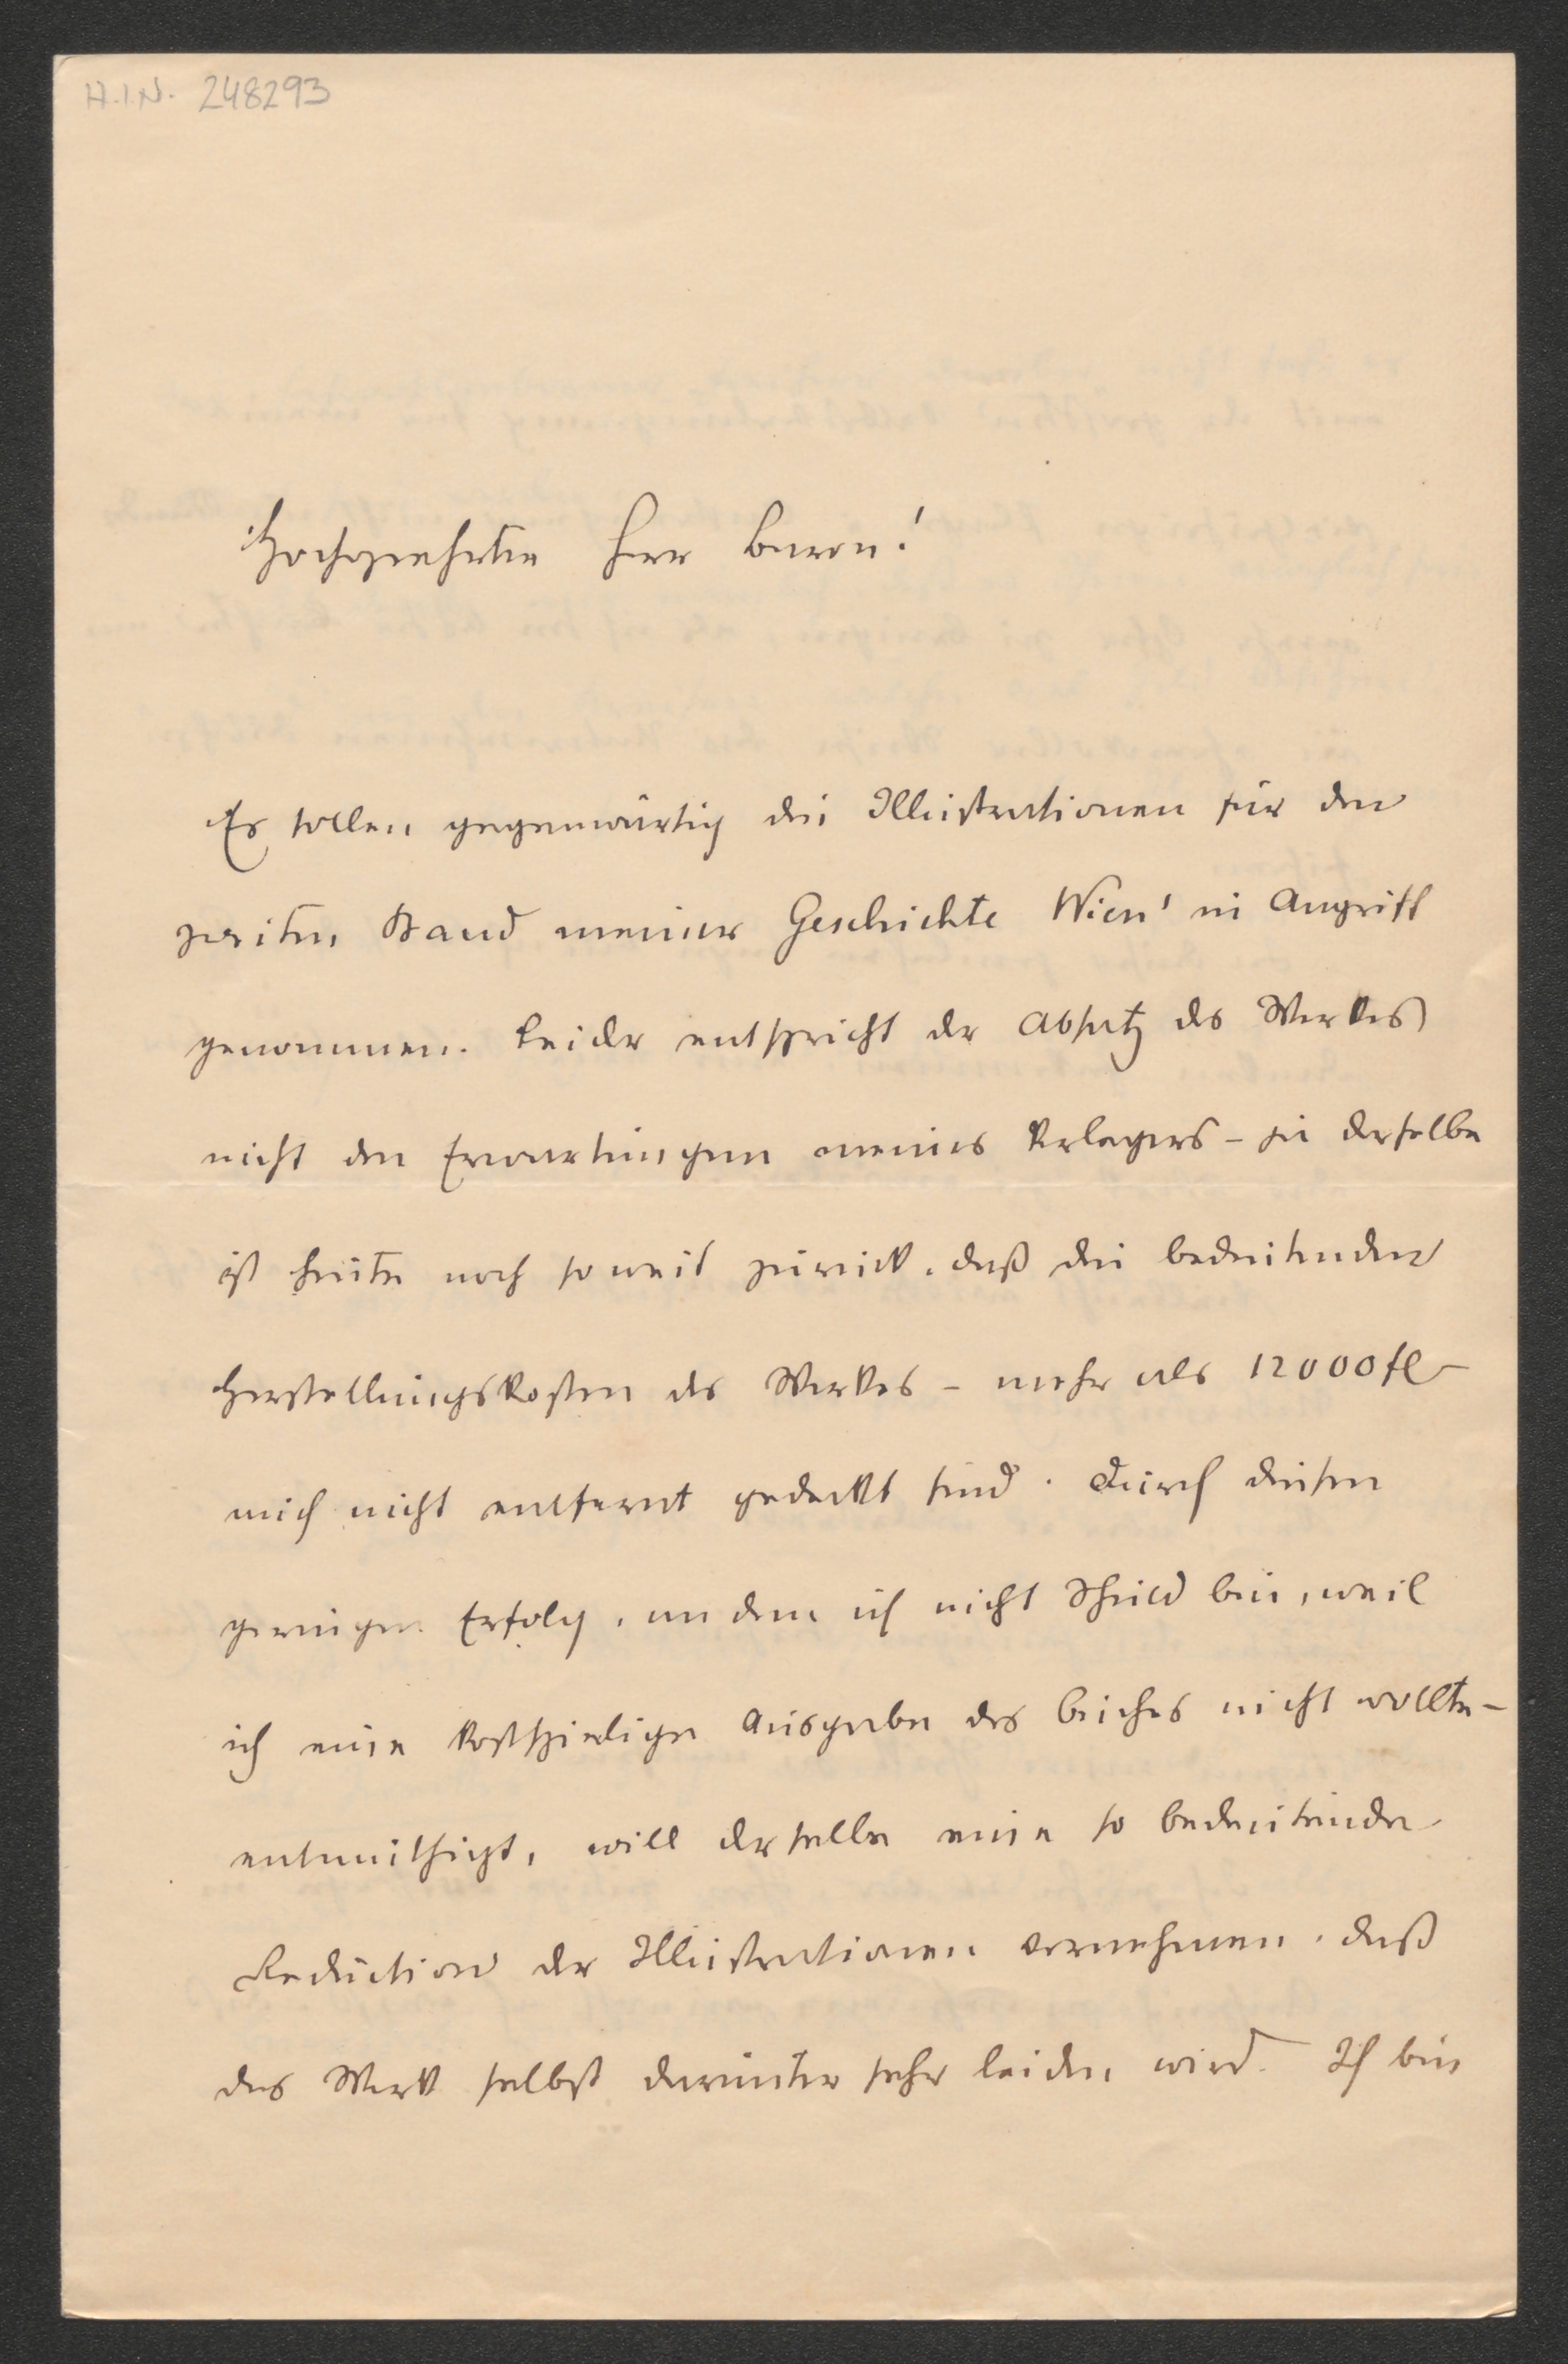 H.I.N. 248293
Hochgeehrter Herr Baron!
Es sollen gegenwärtig die Illustrationen für den
zweiten Band meiner Geschichte Wien's in Angriff
genommen. Leider entspricht der Absatz des Werkes
nicht den Erwartungen meines Verlegers – ja derselbe
ist heute noch so weit zurück, daß die bedeutenden
Herstellungskosten des Werkes – mehr als 12000 fl –
nicht entfernt gedeckt sind. Durch diesen
geringen Erfolg, an dem ich nicht Schuld bin, weil
ich eine kostspielige Ausgabe des Buches nicht wollte –
entmuthigt, will derselbe eine so bedeutende
Reduction der Illustrationen vornehmen, daß
das Werk selbst darunter sehr leiden wird. Ich bin